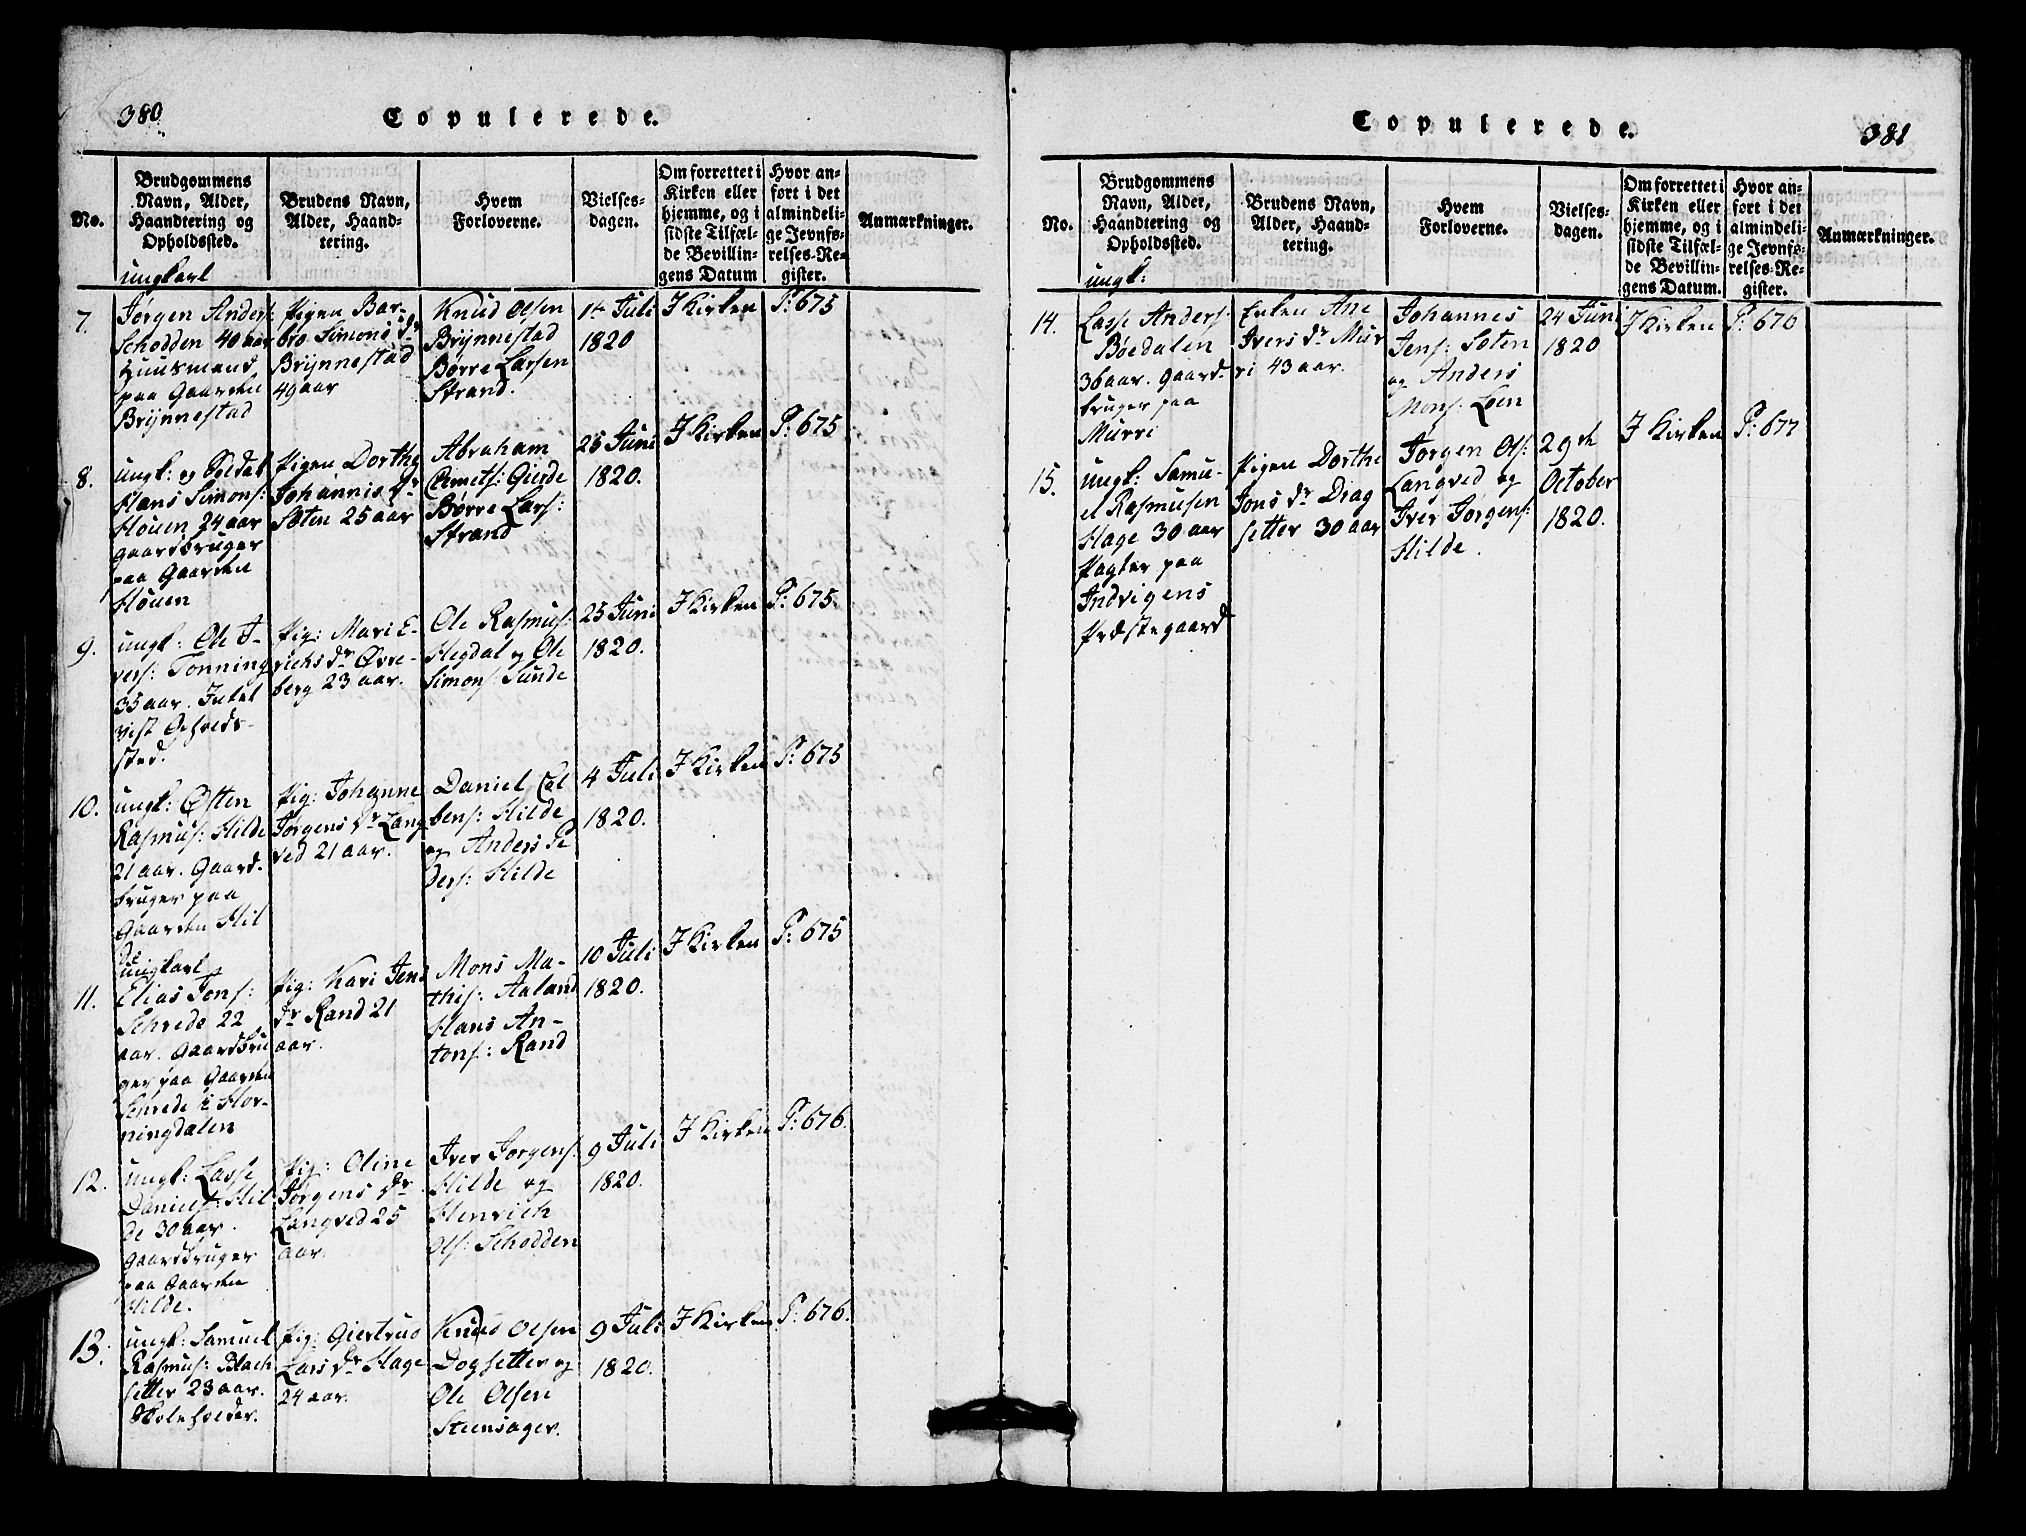 380.
Copulerede.
No.
Brudgommens
Navn, Alder,
Haandtering og
Opholdssted.
Brudens Navn,
Alder, Haand-
tering.
Hvem
Forloverne.
Vielses-
dagen.
Om forrettet i
Kirken eller
hjemme, og i
sidste Tilfæl-
de Bevillin-
gens Datum
Hvor an-
ført i det
almindeli-
ge Jevnfø-
relses-Re-
gister.
Anmærkninger.
7.
ungkarl
Jørgen Anders:
Schodden 40 aar
Huusmand
paa Gaarden
Brÿnnestad
Pigen Bar-
bro Simons dr
Brÿnnestad
49 aar
Knud Olsen
Brÿnnestad
Børre Larsen
Strand.
14 Juli
1820
I Kirken
P: 675
8.
ungk: og Soldat
Hans Simons:
Høuen 24 aar
gaardbruger
paa Gaarden
Høuen
Pigen Dorthe
Johannis dr
Sæten 25 aar
Abraham
Clmets: Gierde
Børre Lars:
Strand
25 Juni
1820.
I Kirken
P: 675
9.
ungk: Ole I-
vers: Tonning
35 aar. Intet
vist Opholds-
sted.
Pig: Mari E-
richs dr Øvre-
berg 23 aar.
Ole Rasmus:
Hegdal og Ole
Simons: Sunde
25 Juni
1820.
I Kirken
P: 675.
10.
ungk: Østen
Rasmus: Hilde
21 aar. Gaard-
bruger paa
Gaarden Hil
de
Pig: Johanne
Jørgens dr Lang
ved 21 aar.
Daniel El
bens: Hilde
og Anders Pe
ders: Hilde
4 Juli
1820.
I Kirken
P: 675
11.
ungkarl
Elias Jons:
Schrede 22
aar. Gaardbru
ger paa Gaarden
Schrede i Hor-
ningdalen
Pig: Kari Jens
dr Rand 21
aar.
Mons Ma-
this: Aaland
Hans An-
tons: Rand
10 Juli
1820.
I Kirken
P: 675
12.
ungk: Lasse
Daniels: Hil
de 30 aar.
gaardbruger
paa Gaarden
Hilde.
Pig: Oline
Jørgens dr
Langved 25
aar
Iver Jørgens:
Hilde og
Henrich
Ols: Schodden
9 Juli
1820.
I Kirken
P: 676.
13.
ungk: Samuel
Rasmus: Blach
setter 23 aar.
Skoleholder.
Pig: Giertrud
Lars dr Hage
24 aar.
Knud Olsen
Dogsetter og
Ole Olsen
Steensager.
9 Juli
1820.
I Kirken
P: 676.
Copulerede.
381
No.
Brudgommens
Navn, Alder,
Haandtering og
Opholdssted.
Brudens Navn,
Alder, Haand-
tering.
Hvem
Forloverne.
Vielses-
dagen.
Om forrettet i
Kirken eller
hjemme, og i
sidste Tilfæl-
de Bevillin-
gens Datum.
Hvor an-
ført i det
almindeli-
ge Jevnfø-
relses-Re-
gister.
Anmærkninger.
14.
ungk:
Lasse Anders:
Bøedalen
36 aar. Gaard-
bruger paa
Murri
Enken Ane
Ivers dr Mur
ri 43 aar.
Johannes
Jens: Sæten
og Anders
Mons: Loen
24 Juni
1820
I Kirken
P: 676
15.
ungk: Samu-
el Rasmusen
Hage 30 aar
Pagter paa
Indvigens
Præstegaard
Pigen Dorthe
Jons dr Drag
setter 30 aar
Jørgen Ols:
Langved og
Iver Jørgens:
Hilde.
29de
October
1820.
I Kirken
P: 677